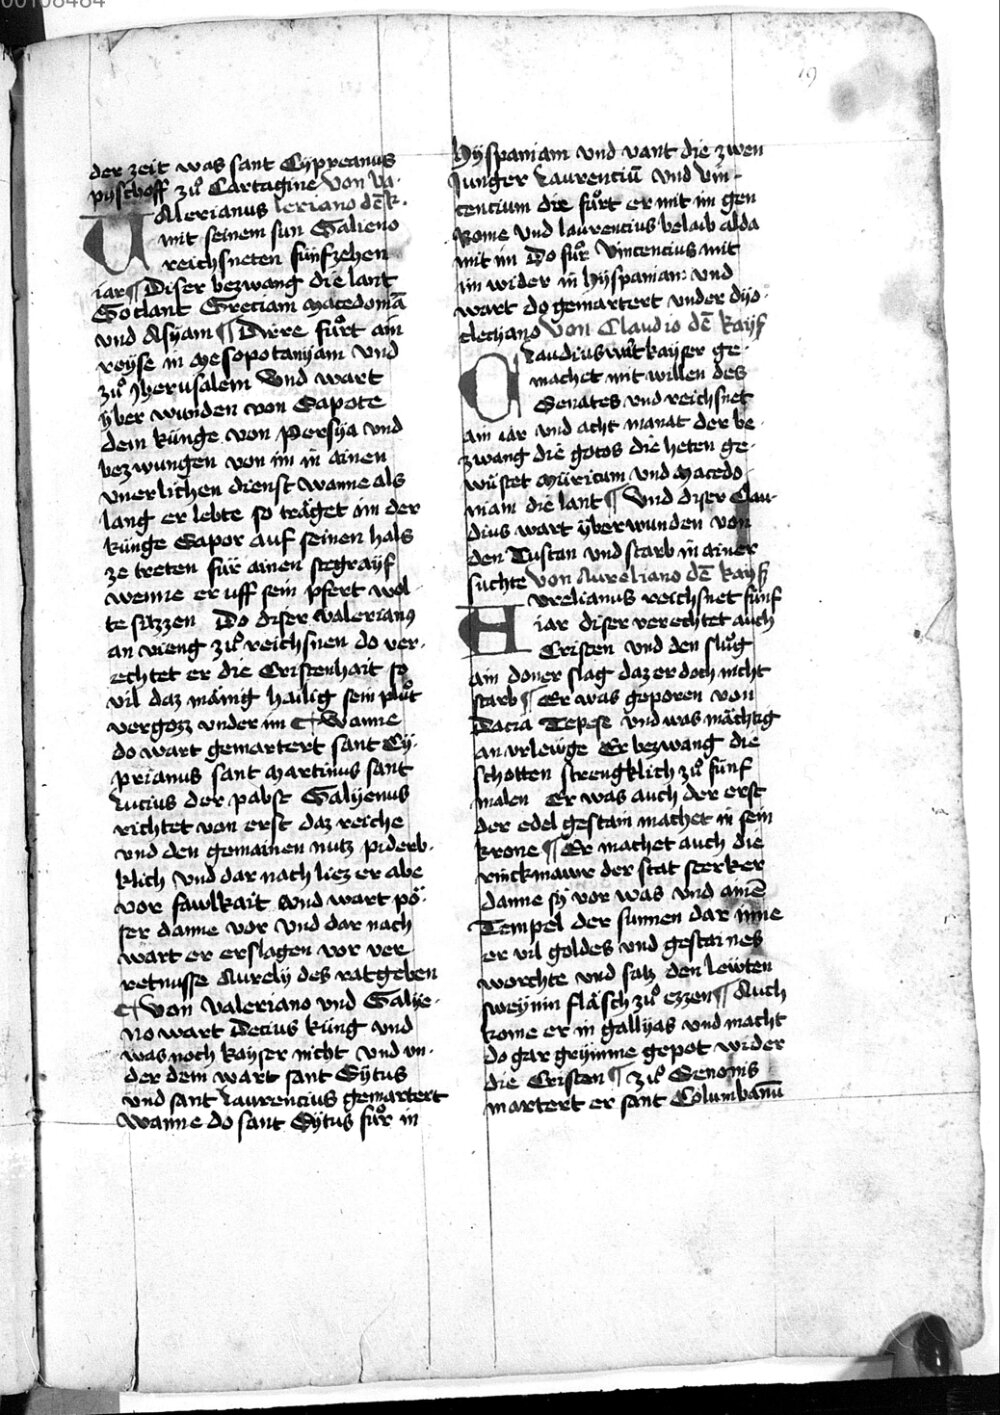 00108484
19
der zeit was sant Cyppreanus
pyschoff zuͦ Cartagine von va-
Valerianus leriano dē k.
mit seinem sun Galieno
reichsneten funfzehen
iar ¶ Diser bezwang die lant
Gotlant Greciam Macedoniā
vnd Asyam ¶ Dirre fuͦrt ain
reyse in Mesopotanyam vnd
zuͦ Jherusalem Vnd wart
yber wunden von Sapote
dem künge von Persya vnd
bezwungen von im in ainen
vnerlichen dienst wanne als
lang er lebte so träget im der
künge Sapor auf seinen hals
ze treten für ainen stegrayf
wenne er uff sein pfert wol-
te sizzen Do diser valerianus
an vieng zuͦ reichsnen do ver-
echtet er die Cristenhait so
vil daz mänig hailig sein pluͦt
vergozz vnder im Wanne
do wart gemartert sant Cy-
prianus sant Martinus sant
Lucius der pabst Galyenus
richtet von erst daz reiche
vnd den gemainen nutz piderb-
klich vnd dar nach liez er abe
vor fawlkait vnd wart pö-
ser danne vor vnd dar nach
wart er erslagen vor ver-
retnusse Aurely des ratgeben
Von Valeriano vnd Galye-
no wart Decius küng vnd
was noch kayser nicht vnd vn-
der dem wart sant Sytus
vnd sant Laurencius gemartert
wanne do sant Sytus fuͦr in
Hyspaniam vnd vant die zwen
Junger Laurenciū vnd vin-
cencium die fuͦrt er mit im gen
Rome vnd laurencius belaib alda
mit im Do fuͦr Vincencius mit
im wider in Hyspaniam vnd
wart do gemartert vnder dyo-
clecyano Von Claudio dē kays
Claudius wart kayser ge-
machet mit willen des
Senates vnd reichsnet
ain iar vnd acht manat der be-
zwang die gotos die heten ge-
wüstet Müricum vnd Macedo-
niam die lant ¶ Vnd diser Clau-
dius wart yberwunden von
den Tustan vnd starb in ainer
suchte Von Aureliano dē kays
Aurelianus reichsnet funf
iar diser verechtet auch
Cristen vnd den sluͦg
ain doner slag daz er doch nicht
starb ¶ Er was geporen von
Dacia Tepese vnd was mächtig
an vrleüge Er bezwang die
schotten strengklich zuͦ fünf
malen Er was auch der erst
der edel gestain machet in sein
krone ¶ Er machet auch die
rinckmawr der stat sterker
danne sy vor was vnd ainē
Tempel der sunnen dar inne
er vil goldes vnd gestaines
worchte vnd saltz den lewten
sweynin fläsch zuͦ ezzen ¶ Auch
kome er in gallyas vnd macht
do gar grymme gepot wider
die Cristen ¶ zuͦ Senonis
martert er sant Columbanū